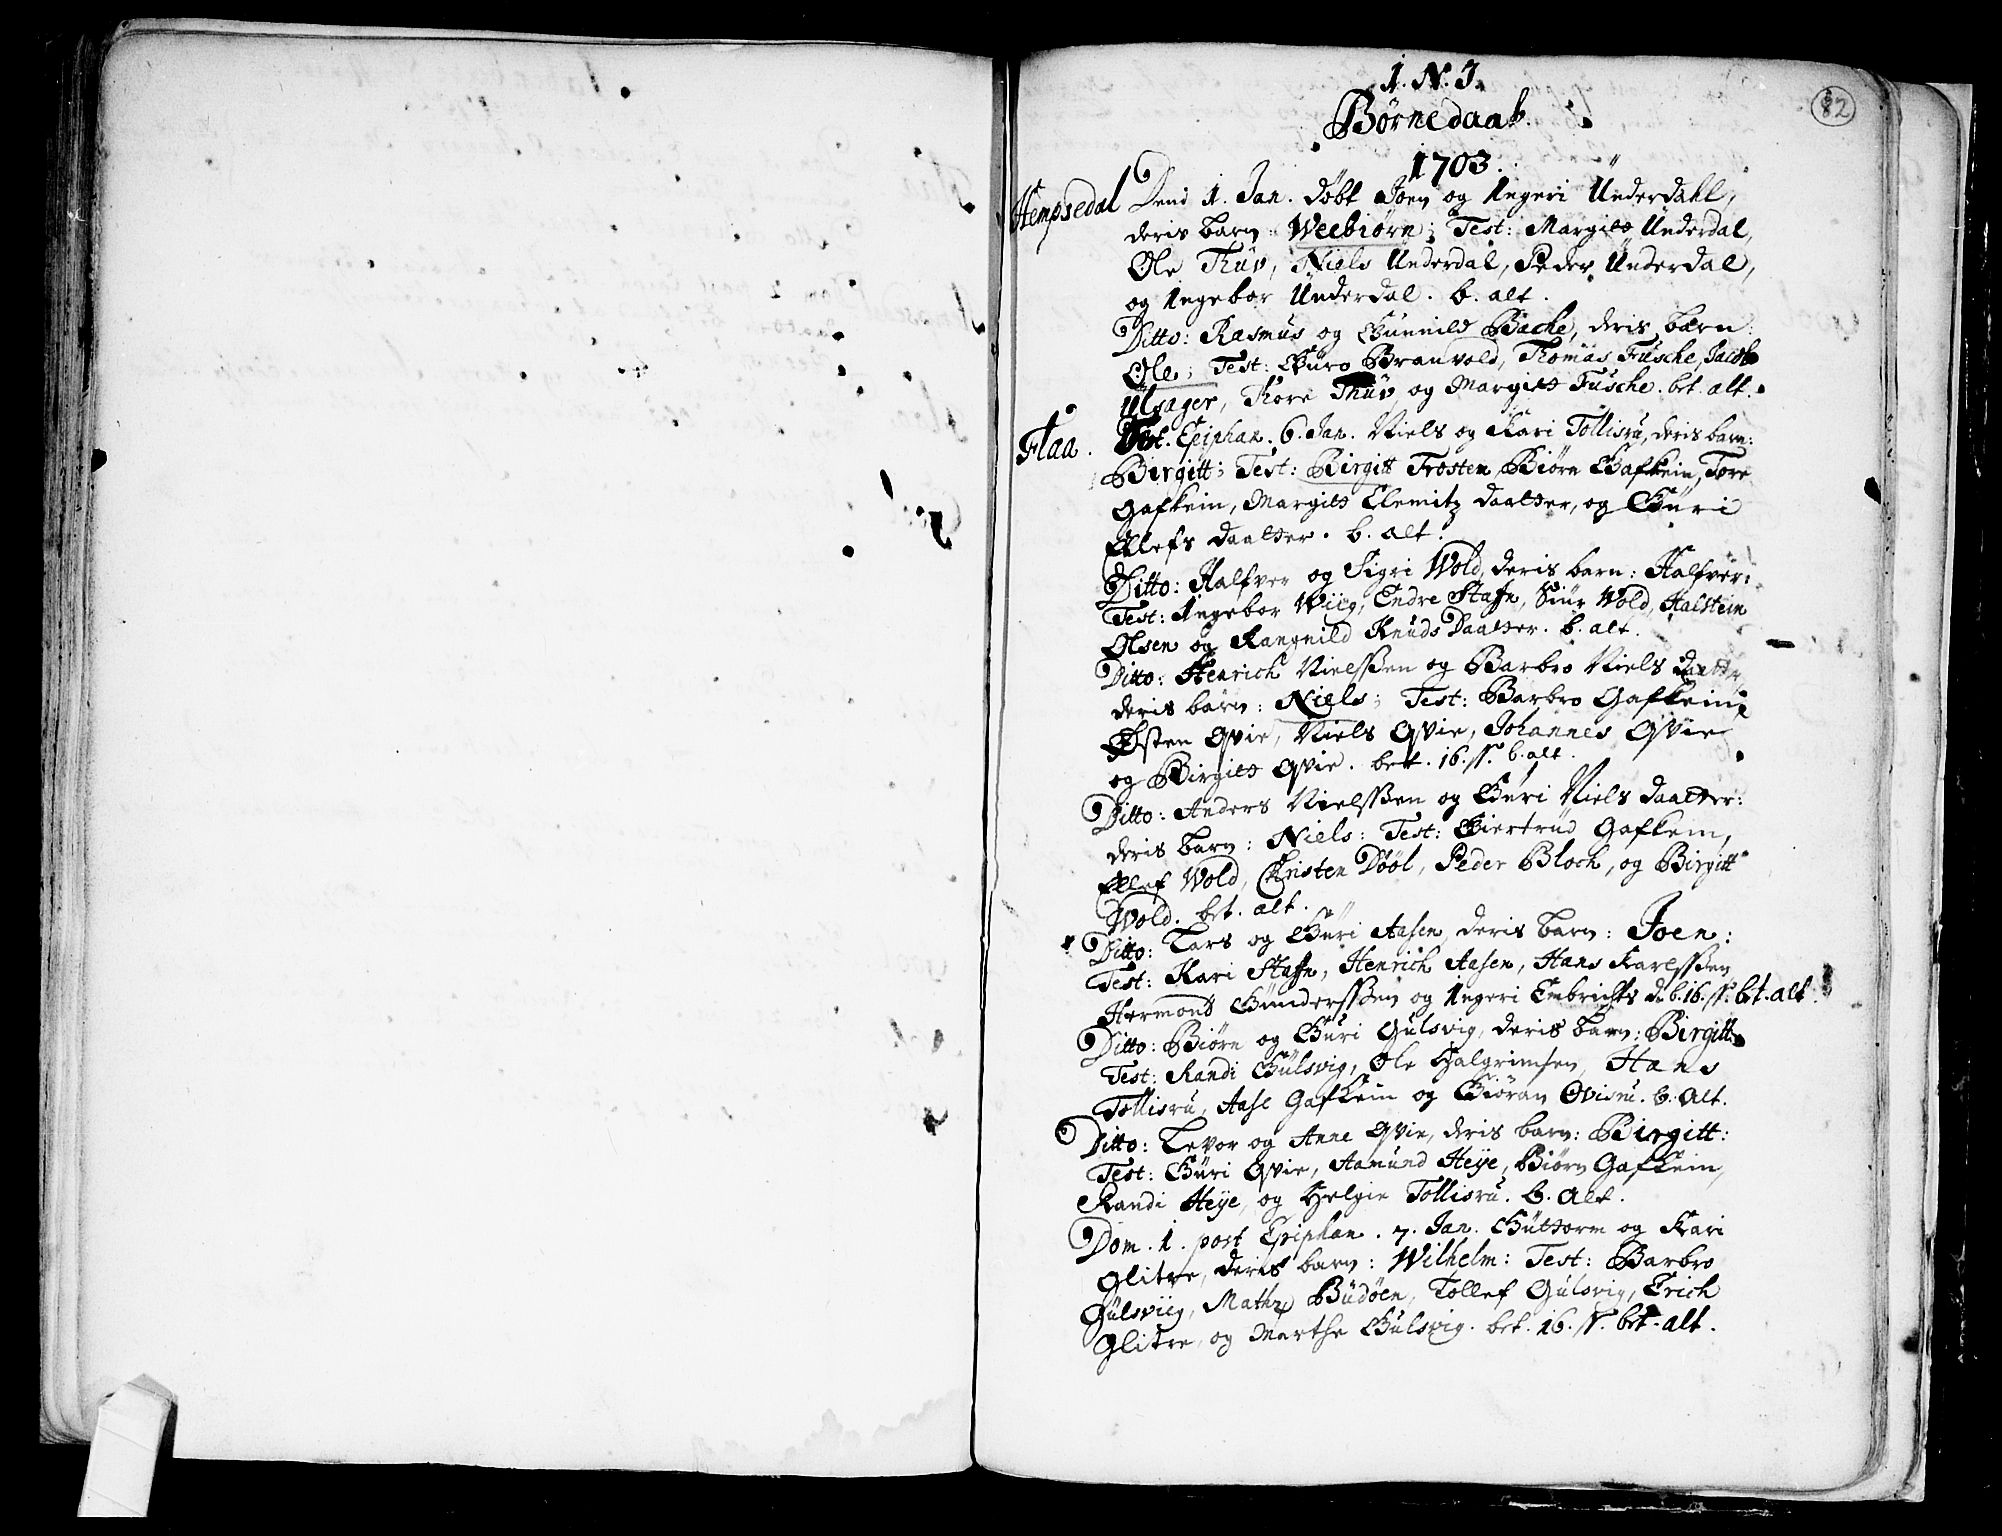 82
I. N. J.
Børnedaab.
1703.
Hempsedal
Dend 1. Jan. døbt Joen og Ingeri Ünderdahl,
deris barn: Weebiørn; Test: Margitt Underdal,
Ole Thüv, Niels Underdal, Peder Ünderdal,
og Ingebor Ünderdal. b. alt.
Ditto: Rasmus og Gunnild Bache, deris barn:
Ole; Test: Guro Branvold, Thomas Früsche, Jacob
Ulsager, Thore Thüv og Margitt Füsche. bet. alt.
Flaa.
Fest. Epiphan. 6. Jan. Niels og Kari Tollisrü, deris barn:
Birgitt; Test: Birgitt Trosten, Biørn Gafkein, Tore
Gafkein, Margitt Clemitz daatter, og Güri
Ellefs daatter. b. alt.
Ditto: Halfver og Sigri Wold, deris barn: Halfver:
Test: Ingebor Wiig, Endre Stafn, Siür Wold, Halstein
Olsen og Rangnild Knüds Daatter. b. alt.
Ditto: Henrich Nielsßen og Barbro Niels daatter,
deris barn: Niels; Test: Barbro Gafkein,
Østen Qvie, Niels Qvie, Johannes Qvie
og Birgitt Qvie. bet. 16. ß. b. alt.
Ditto: Anders Nielsßen og Güri Niels daatter:
deris barn: Niels: Test: Giertrüd Gafkein,
Ellef Wold, Christen Døøl, Peder Bloch, og Birgitt
Wold. bet. alt.
Ditto: Lars og Güri Aasen, deris barn: Joen:
Test: Kari Stafn, Henrich Aasen, Hans Karlsßen,
Hermond Gündersßen og Ingeri Embrichts d. b. 16. ß. bt. alt.
Ditto: Biørn og Güri Gülsvig, deris barn: Birgitt.
Test: Randi Gülsvig, Ole Halgrimsen, Hans
Tollisrü, Aase Gafkein og Giøran Qvisrü. b. alt.
Ditto: Levor og Anne Qvie, deris barn: Birgitt:
Test: Güri Qvie, Aamund Heye, Biørn Gafkein,
Randi Heye, og Helgie Tollisrü. b. alt.
Dom. 1. post Epiphan. 7. Jan. Güttorm og Kari
Glitre, deris barn: Wilhelm: Test: Barbro
Gülsviig, Büdøen, Tollef Gülsvig, Erich
Glitre, og Marthe Gülsvig. bet. 16. ß. bet. alt.